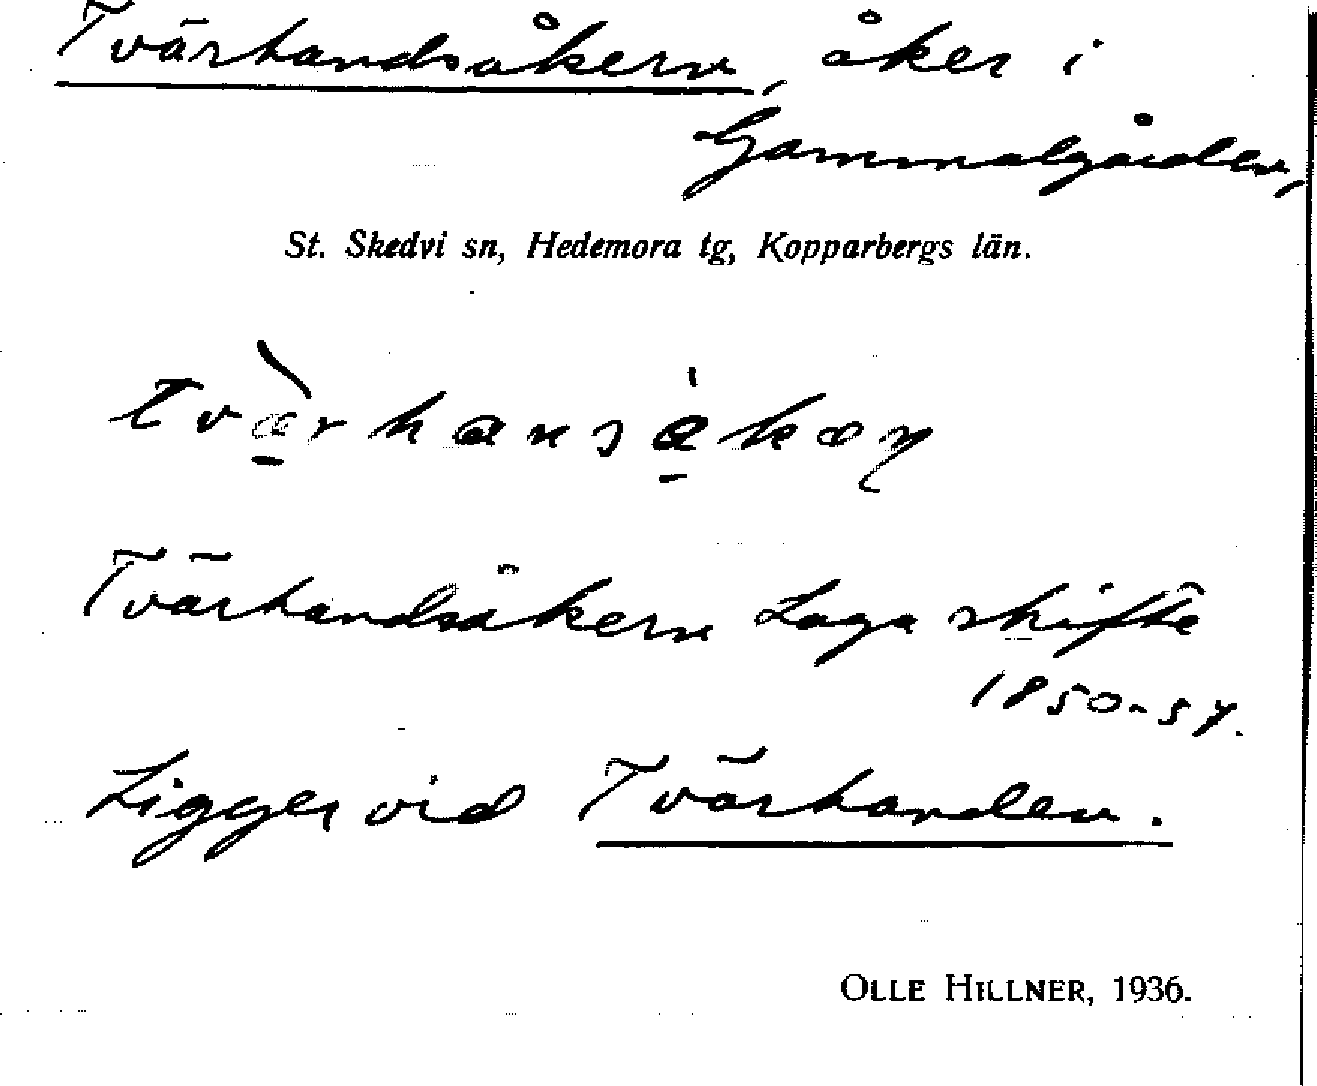 Tvärhandsåkern, åker i
Gammalgården,
St. Skedvi sn, Hedemora tg, Kopparbergs län.
Tvärhandsåkern Laga skifte
1850-57.
Ligger vid Tvärhanden.
OLLE HILLNER, 1936.